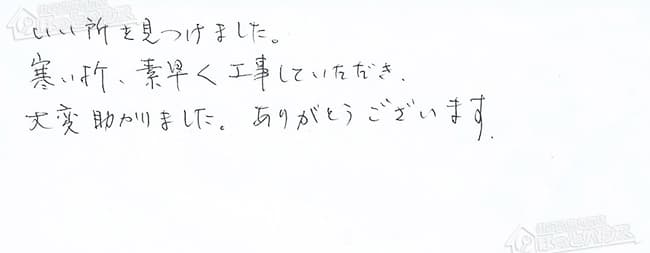 いい所を見つけました。
寒い折、素早く工事していただき、
大変助かりました。ありがとうございます。